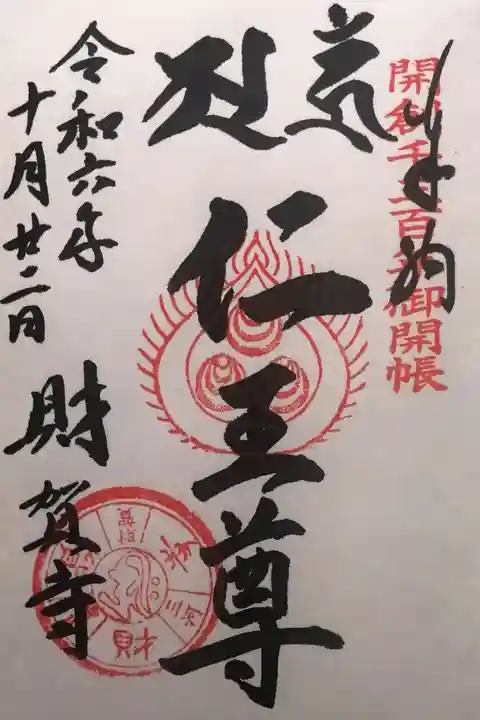 開創千三百年御開帳
奉拝
仁王尊
令和六年
十月廿二日
財賀寺